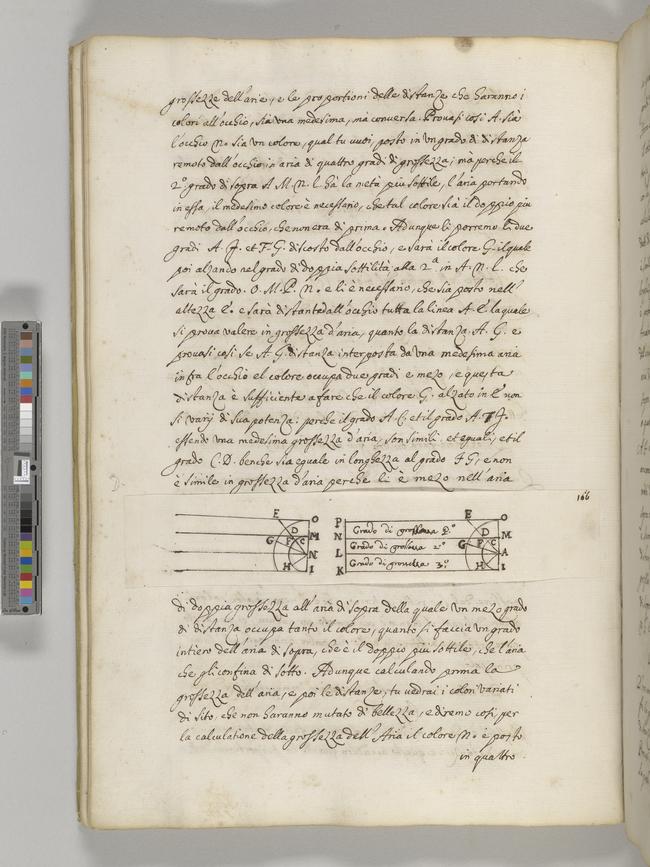 grossezze dell'arie, e le proportioni delle distanze che haranno i
colori all'occhio, sia una medesima, mà conversa. Provasi così A. sia
l'occhio N. sia un colore, qual tu vuoi, posto in un grado di distanza
remoto dall'occhio in aria di quattro gradi di grossezza; ma perche il
2.º grado di sopra A M. N. L. hà la metà più sottile, l'aria portando
in essa, il medesimo colore è necessario, che tal colore sia il doppio più
remoto dall'occhio, che non era di prima. Adunque li porremo li due
gradi A. F. et F. G. discosto dall'occhio, e sarà il colore G. il quale
poi alzando nel grado di doppia sottilità, alla 2.ª in A. M. L. che
sarà il grado. O. M. P. N. e li è necessario, che sia posto nell'
altezza E. e sarà distante dall'occhio tutta la linea A. E. la quale
si prova valere in grossezza d'aria, quanto la distanza A. G. e
provasi così se A G. distanza interposta da una medesima aria
infra l'occhio e'l colore occupa due gradi e mezo, e questa
distanza è sufficiente a fare che il colore G. alzato in E non
si varij di sua potenza: perche il grado A. C. et il grado A. F.
essendo una medesima grossezza d'aria, son simili et equali, et il
grado C. D. benche sia eguale in longhezza al grado F G, e non
è simile in grossezza d'aria perche li è mezo nell'aria
166
E O P E O
D Grado di grossezza D
G F C M N G F C M
Grado di grossezza 2.º
N L A
Grado di grossezza 3.º
H I K H I
di doppia grossezza all'aria di sopra della quale un mezo grado
di distanza occupa tanto il colore, quanto si faccia un grado
intiero dell'aria di sopra, che è il doppio più sottile, che l'aria
che gli confina di sotto. Adunque calculando prima la
grossezza dell'aria, e poi le distanze, tu vedrai i colori variati
di sito, che non haranno mutato di bellezza, e diremo così, per
la calculatione della grossezza dell'Aria il colore N. è posto
in quattro